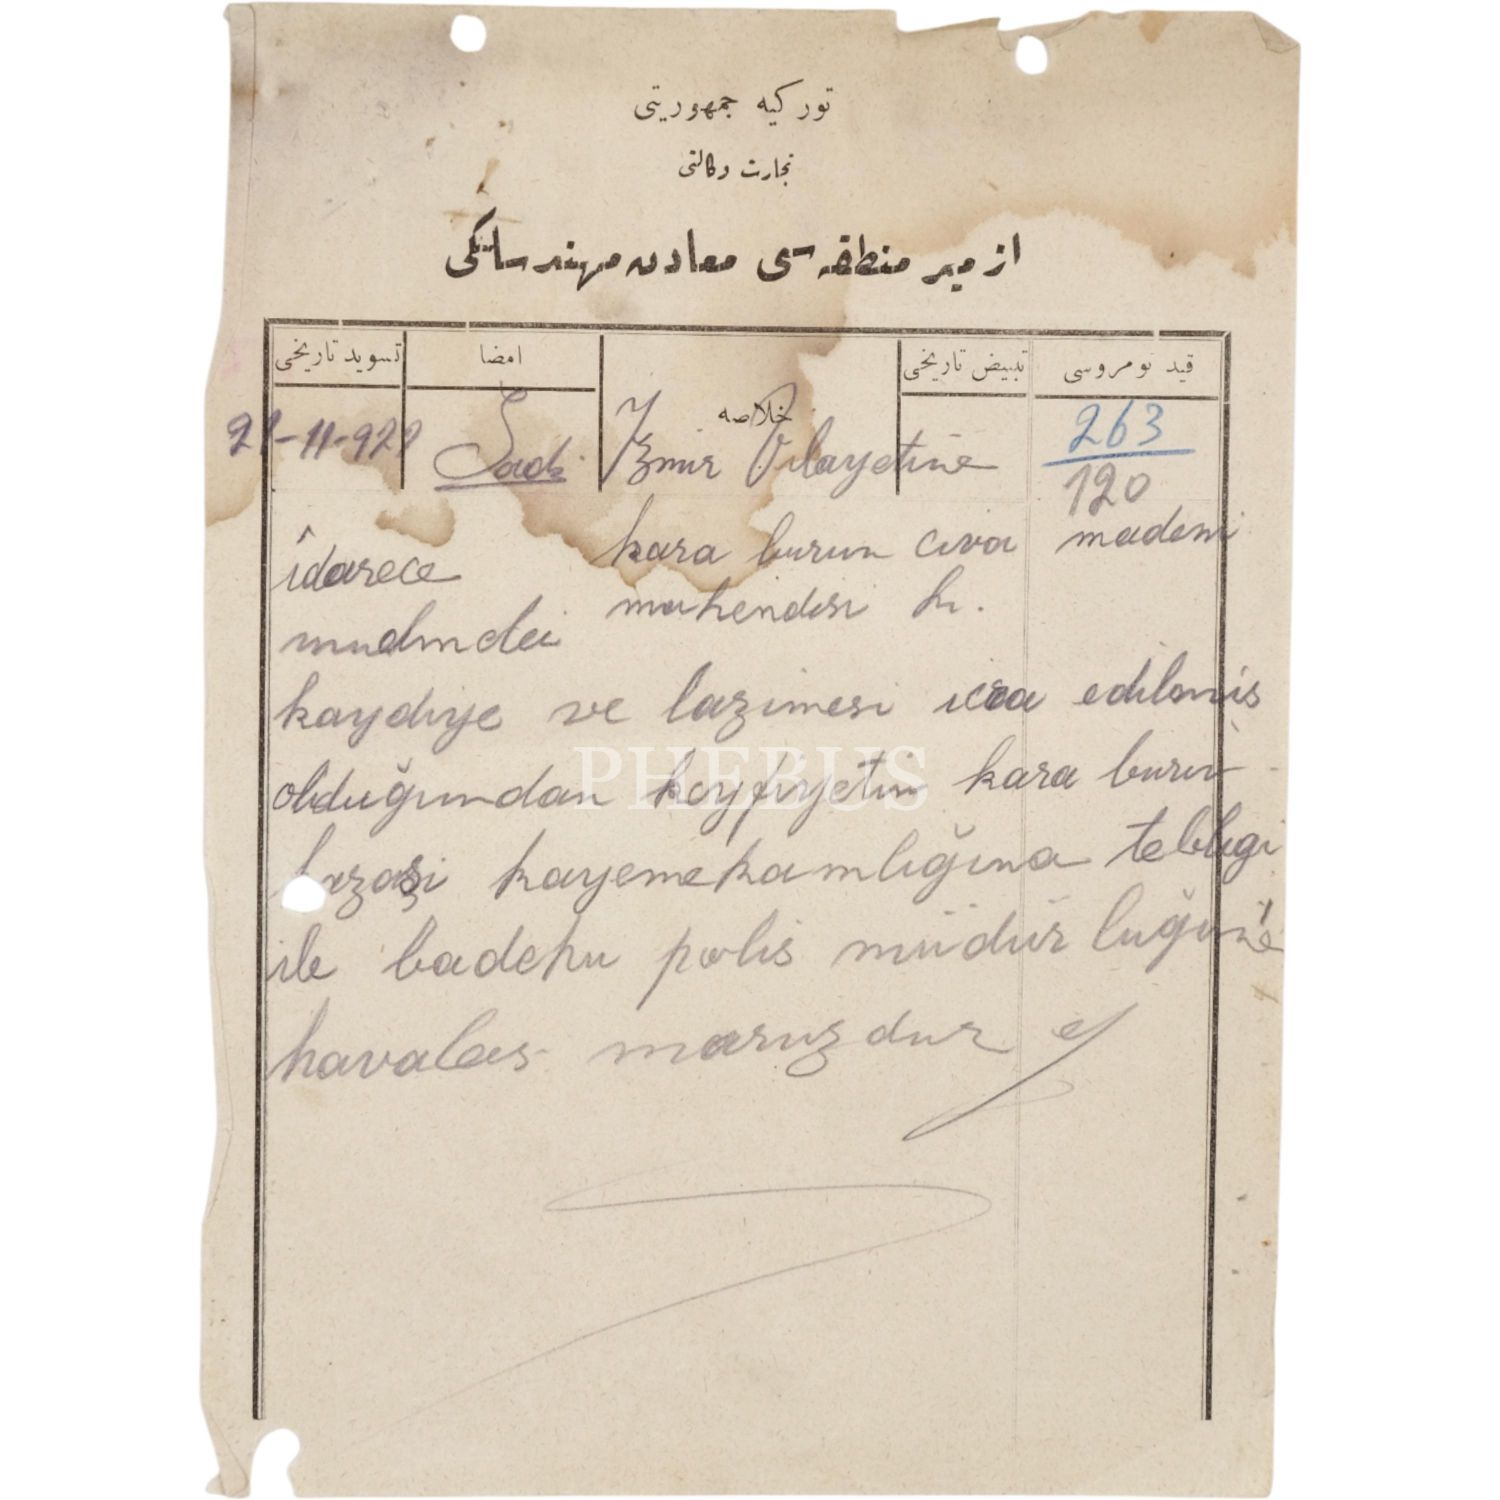 توركيه جمهوريتى
تجارت وكالتى
ازمير منطقه سى معادن مهندسلكى
قيد نومروسى
تبييض تاريخى
خلاصه
امضا
تسويد تاريخى
263
120
Izmir Vilayetine
Sadi
21-11-929
kara burun civa madeni
mühendisi h.
idarece
kaydiye ve lazimesi icra edilmis
olduğundan keyfiyetin kara burun
kazasi kayemekamlığına tebligi
ile badehu polis müdürluğune
havalas maruzdur
PHEBUS